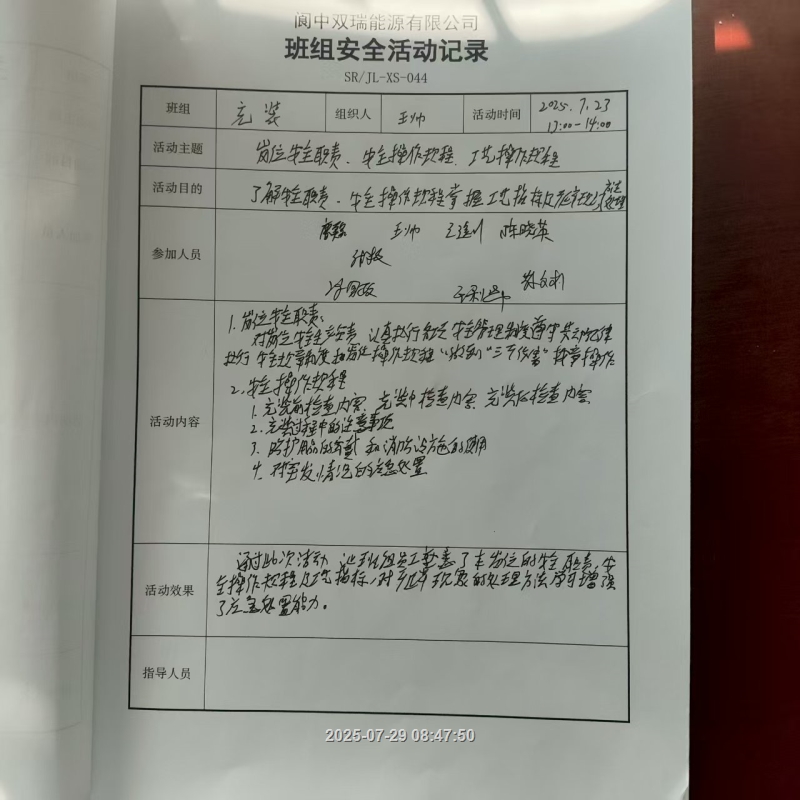 阆中双瑞能源有限公司
班组安全活动记录
SR/JL-XS-044
班组 充装 组织人 王帅 活动时间 2025.7.23
13:00-14:00
活动主题 岗位安全职责、安全操作规程、工艺操作规程
活动目的 了解安全职责、安全操作规程掌握工艺指标及异常现象应急处理
参加人员
王帅 陈晓英
活动内容
1. 岗位安全职责:
对岗位安全生产负责,认真执行各项安全管理制度遵守劳动纪律
执行安全规章制度和岗位操作规程"做到"三不伤害"
2. 安全操作规程
1. 充装前检查内容、充装中检查内容、充装后检查内容
2. 充装过程中的注意事项
3. 防护用品的穿戴和消防设施的使用
4. 对突发情况的应急处置
活动效果
通过此次活动,让班组员工熟悉了本岗位的安全职责,安
全操作规程及工艺指标,对异常现象的处理方法,增强
了应急处置能力。
指导人员
2025-07-29 08:47:50